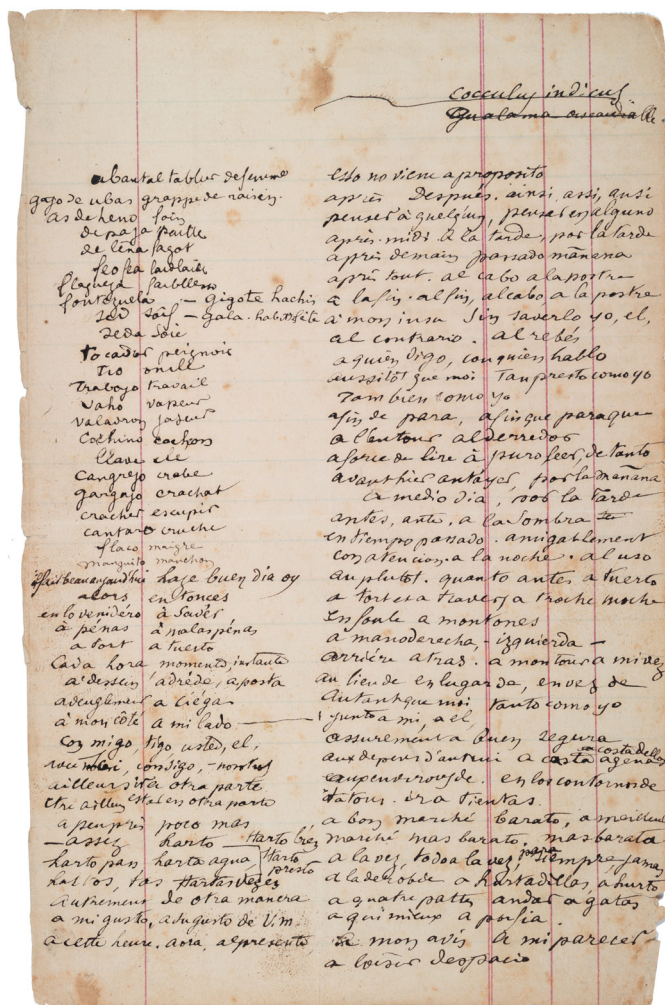 cocculus indicus
abantal tablier de femme
gajo de ubas grappe de raisin.
as de heno foin
de paja paille
de leña fagot
flaqueza faiblesse
fontezuela — gigote hachis
sed soif — gala. habit de fête
seda soie
tocador peignoir
trabajo travail
vaho vapeur
cochino cochon
llave clé
cangrejo crabe
gargajo crachat
cracher escupir
cantaro cruche
flaco maigre
manguito manchon
il fait beau aujourd'hui haze buen dia oy
alors entonces
en lo venidéro à savér
à pénas à malas pénas
a tort a tuerto
Cada hora momento, instante
a dessein adréde, aposta
a ciégas
à mon côté a mi lado — junto a mi, a el
con migo, tigo, usted, el,
consigo, – nosotros
ailleurs otra parte
être ailleurs estar en otra parte
a peu près poco mas
— assez harto — Harto bréz
harto pan harta agua Harto presto
hartos, tas Hartas vezes
autrement de otra manera
a mi gusto, a su gusto de V.m.
a cette heure. aora, al presente,
esto no viene a proposito
après Después. ainsi, assi, ansi
penser à quelqu'un, pensar en alguno
après-midi a la tarde, por la tarde
après demain passado mañana
après tout. al cabo a la postre
a la fin. al fin, al cabo, a la postre
à mon insu Sin saverlo yo, el,
al contrario. al rebés
a quien digo, con quien hablo
aussitôt que moi Tan presto como yo
Tambien como yo
afin de para, afin que para que
a l'entour alderredor
a force de lire à puro leer, de tanto
avant hier antayer, por la mañana
a medio dia, por la tarde
antes, ante, a la sombra
en tiempo passado. amigablement
con atencion. a la noche. al uso
au plutot. quanto antes a tuerto
a tort et a travers a troche moche
en foule a montones
a mano derecha, — izquierda —
arriére atras. a mon tour a mi vez
au lieu de en lugar de, en vez de
autant que moi tanto como yo
assurement a buen segura
aux depens d'autrui a costa agena a costa dellos
aux environs de. en los contornos de
a tatons. ir a tientas.
a bon marché barato, a meilleur
marché mas barato, mas barata
a la vez, toda la vez, para siempre jamas
a la derobée a hurtadillas, a hurto
a quatre pattes andar a gatas
a qui mieux a porfia.
a mon avis a mi parecer
a loisir despacio